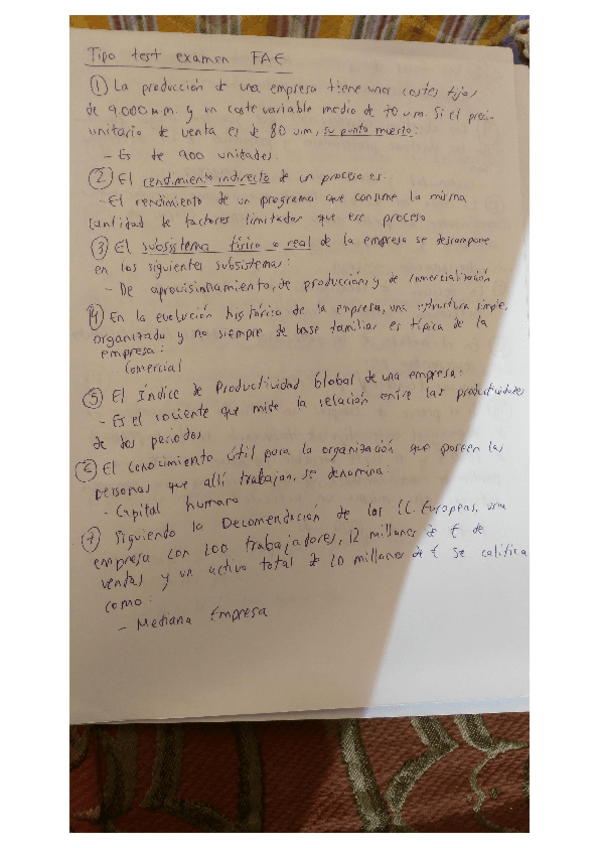 Tipo test examen FAE
① La producción de una empresa tiene unos costes fijos
de 9.000 u.m. y un coste variable medio de 70 u m. Si el preci-
unitario de venta es de 80 um, su punto muerto:
- Es de 900 unidades.
② El rendimiento indirecto de un proceso es:
- El rendimiento de un programa que consume la misma
cantidad de factores limitados que ese proceso
③ El subsistema físico o real de la empresa se descompone
en los siguientes subsistemas:
- De aprovisionamiento, de producción y de comercialización
④ En la evolución histórica de la empresa, una estructura simple,
organizada y no siempre de base familiar es típica de la
empresa:
Comercial
⑤ El Índice de Productividad Global de una empresa:
- Es el cociente que mide la relación entre las productividades
de dos periodos
⑥ El conocimiento útil para la organización que poseen las
personas que allí trabajan, se denomina:
- Capital humano
⑦ Siguiendo la Decomendación de los CC. Europeas, una
empresa con 200 trabajadores, 12 millones de € de
ventas y un activo total de 20 millones de € se califica
como:
- Mediana Empresa